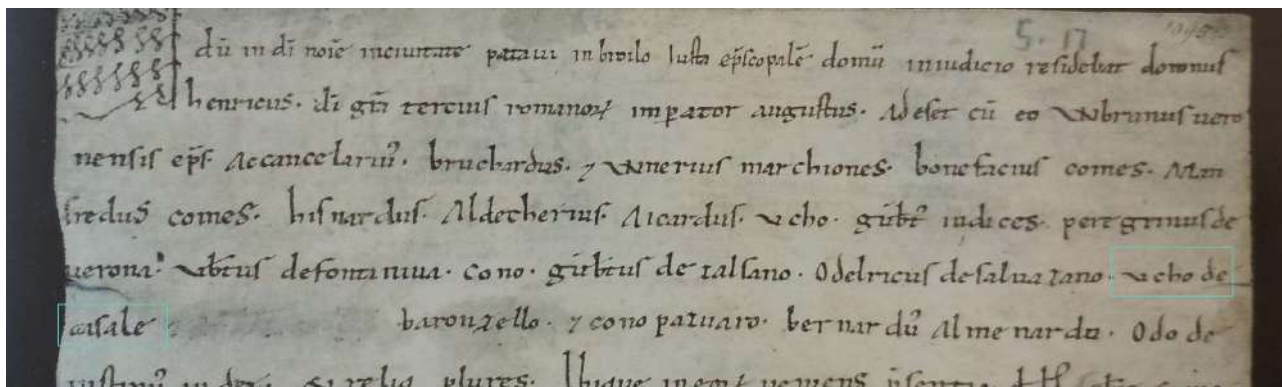 5. 17
dū in dī noīe inciuitate patauī in broilo Iusta ep̄scopalē domū iniudicio residebat domnus
henricus. dī grā tercius romanoꝝ imperator augustus. Adeset cū eo Wbrunus uero
nensis ep̄s Accancelariuˀ. bruchardus. ⁊ Wnerius marchiones. bonefacius comes. Man
fredus comes. hisnardus. Aldecherius. Aicardus. Vcho. gūbtˀ iudices. peregrinus de
uerona. Vb̄tus defontaniua. Cono. gūbtus de Talsano. Odelricus desaluazano. Vcho de
casale baronzello. ⁊ cono patuaro. bernarduˀ Almenardo. Odo de
plures.